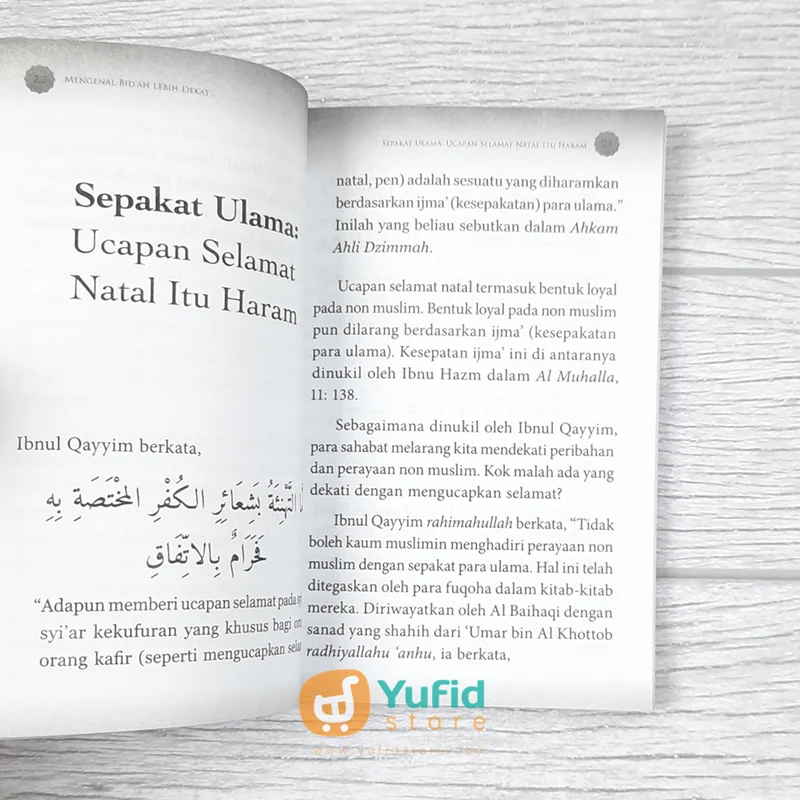 MENGENAL BID'AH LEBIH DEKAT
Sepakat Ulama:
Ucapan Selamat
Natal Itu Haram
Ibnul Qayyim berkata,
التَّهْنِئَةُ بِشَعَائِرِ الكُفْرِ المُخْتَصَّةِ بِهِ
فَحَرَامٌ بِالاتِّفَاقِ
"Adapun memberi ucapan selamat pada
syi'ar kekufuran yang khusus bagi
orang kafir (seperti mengucapkan
SEPAKAT ULAMA: UCAPAN SELAMAT NATAL ITU HARAM
natal, pen) adalah sesuatu yang diharamkan
berdasarkan ijma' (kesepakatan) para ulama."
Inilah yang beliau sebutkan dalam Ahkam
Ahli Dzimmah.
Ucapan selamat natal termasuk bentuk loyal
pada non muslim. Bentuk loyal pada non muslim
pun dilarang berdasarkan ijma' (kesepakatan
para ulama). Kesepatan ijma' ini di antaranya
dinukil oleh Ibnu Hazm dalam Al Muhalla,
11: 138.
Sebagaimana dinukil oleh Ibnul Qayyim,
para sahabat melarang kita mendekati peribahan
dan perayaan non muslim. Kok malah ada yang
dekati dengan mengucapkan selamat?
Ibnul Qayyim rahimahullah berkata, "Tidak
boleh kaum muslimin menghadiri perayaan non
muslim dengan sepakat para ulama. Hal ini telah
ditegaskan oleh para fuqoha dalam kitab-kitab
mereka. Diriwayatkan oleh Al Baihaqi dengan
sanad yang shahih dari 'Umar bin Al Khottob
radhiyallahu 'anhu, ia berkata,
Yufid
store